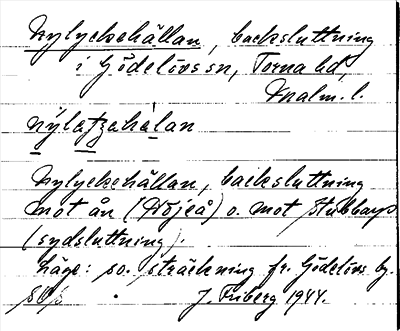 Nylyckehällan, backsluttning
i Gödelövs sn, Torna hd,
Malm. l.
Nylyckehällan, backsluttning
mot ån (Höjeå) o. mot Stubbarp
(sydsluttning).
Läge: so. sträckning fr. Gödelövs by.
J. Friberg 1944.